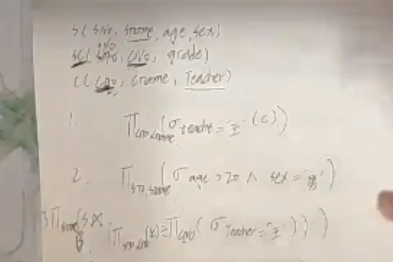 S( SNO, Sname, age, sex)
SC( SNO, CNO, grade)
C( CNO, Cname, Teacher)
1. Π CNO,Cname (σ teacher='王' (C))
2. Π SNO,Sname (σ age >20 ∧ sex='男')
3 Π Sname (S ⋈ (Π SNO,CNO ÷ Π CNO (σ Teacher='王')))